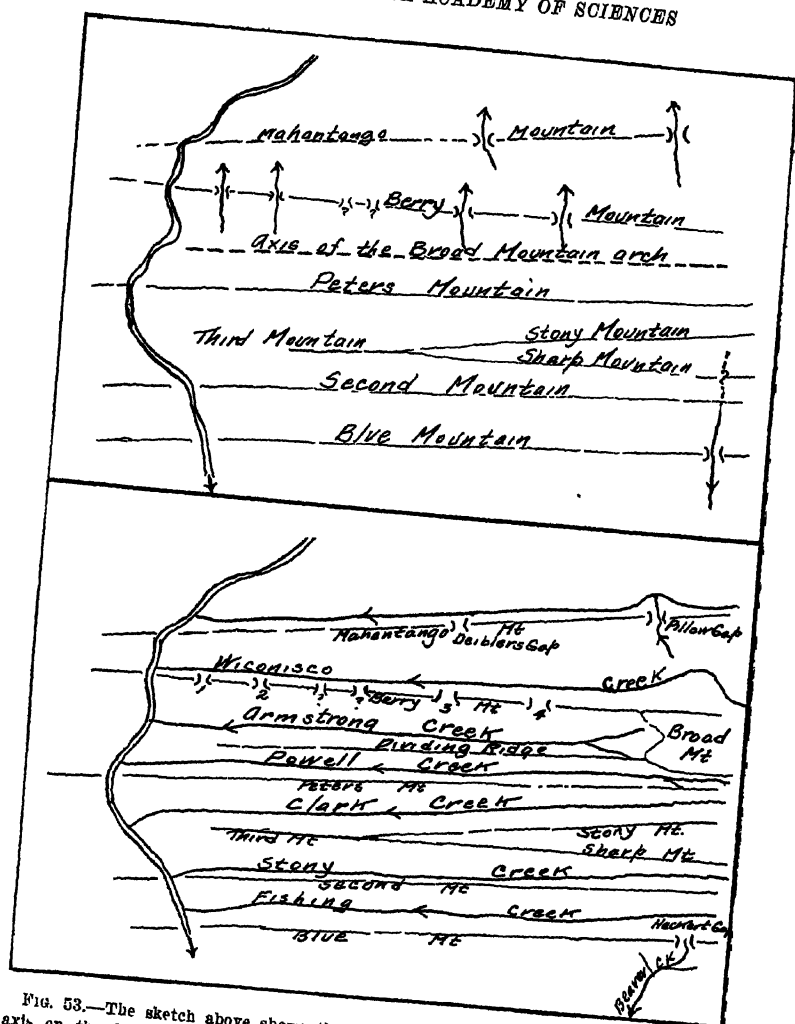 ACADEMY OF SCIENCES
Mahantango Mountain
Berry Mountain
Axis of the Broad Mountain arch
Peters Mountain
Third Mountain
Stony Mountain
Sharp Mountain
Second Mountain
Blue Mountain
Mahantango Mt
Deiblers Gap
Pillow Gap
Wiconisco Creek
1 2 ? ? Berry 3 Mt 4
Armstrong Creek
Broad
Mt
Dividing Ridge
Powell Creek
Peters Mt
Clark Creek
Third Mt
Stony Mt.
Sharp Mt
Stony Creek
Second Mt
Fishing Creek
Heckert Gap
Blue Mt
Beaver Ck
FIG. 53.—The sketch above
axis on the